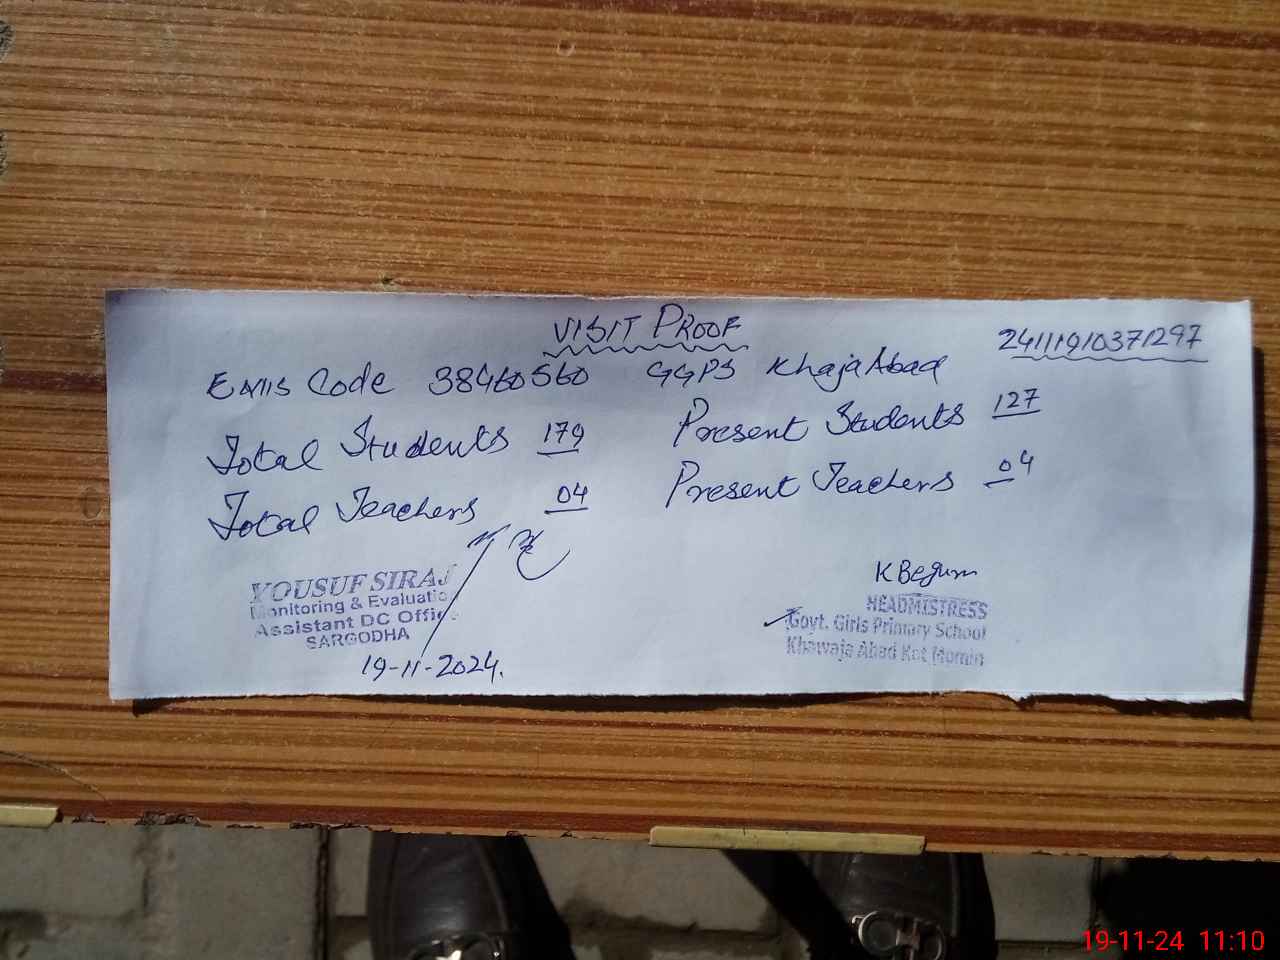 VISIT PROOF
24111910371297
EMIS Code 38460560 GGPS KhajaAbad
Total Students 179 Present Students 127
Total Teachers 04 Present Teachers 04
YOUSUF SIRAJ
Monitoring & Evaluation
Assistant DC Office
SARGODHA
19-11-2024.
K Begum
HEADMISTRESS
Govt. Girls Primary School
Khawaja Abad Kot Momin
19-11-24 11:10